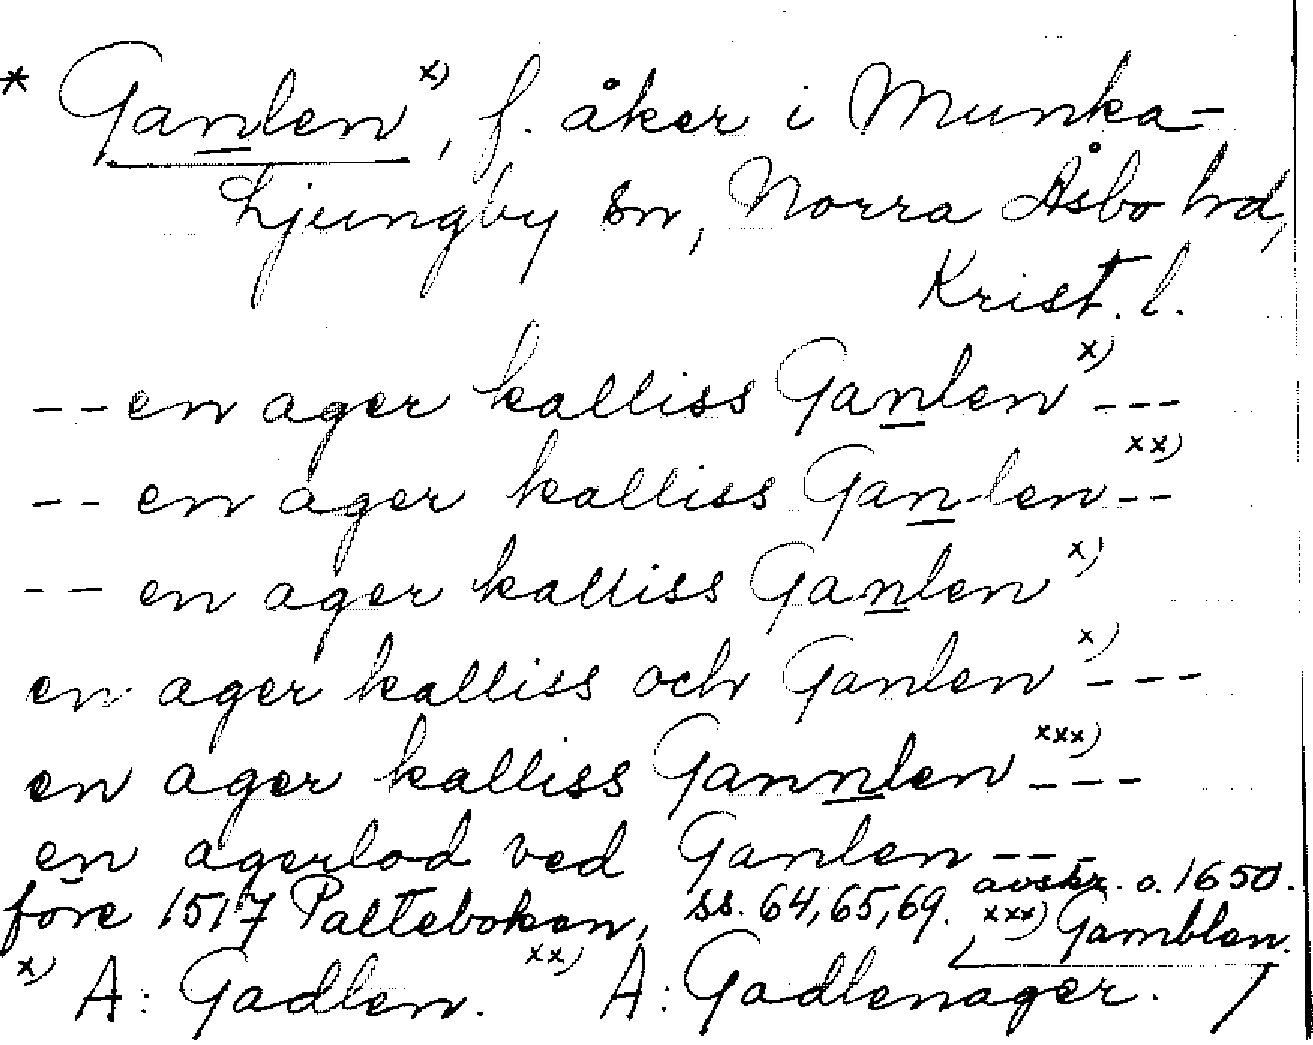 * Ganlen x), f. åker i Munka-
Ljungby sn, Norra Åsbo hd,
Krist. l.
-- en ager kalliss Ganlen x) ---
-- en ager kalliss Ganlen xx) --
-- en ager kalliss Ganlen x)
en ager kalliss och Ganlen x) ---
en ager kalliss Gannlen xxx) ---
en agerlod ved Ganlen ---
före 1517 Palteboken, ss. 64, 65, 69. avskr. o. 1650.
xxx) Gamblen.
x) A: Gadlen. xx) A: Gadlenager.